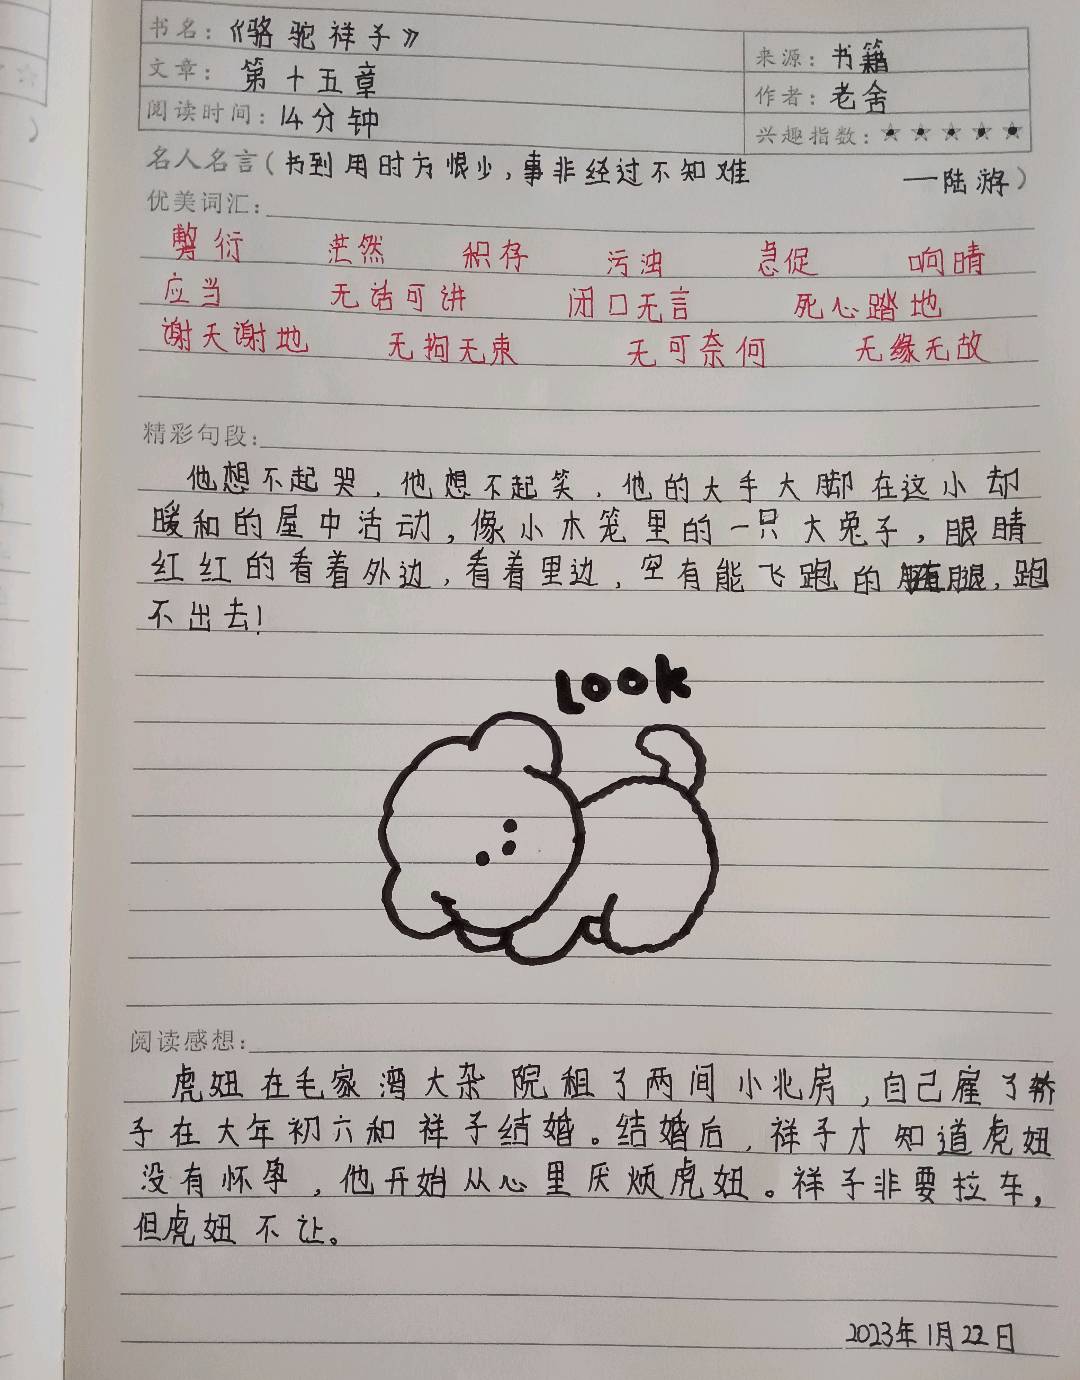 书名：《骆驼祥子》
来源：书籍
文章：第十五章
作者：老舍
阅读时间：14分钟
兴趣指数：★★★★★
名人名言（书到用时方恨少，事非经过不知难 —陆游）
优美词汇：
敷衍 茫然 积存 污浊 急促 响晴
应当 无话可讲 闭口无言 死心踏地
谢天谢地 无拘无束 无可奈何 无缘无故
精彩句段：
他想不起哭，他想不起笑，他的大手大脚在这小却
暖和的屋中活动，像小木笼里的一只大兔子，眼睛
红红的看着外边，看着里边，空有能飞跑的腿，跑
不出去！
LOOK
阅读感想：
虎妞在毛家湾大杂院租了两间小北房，自己雇了轿
子在大年初六和祥子结婚。结婚后，祥子才知道虎妞
没有怀孕，他开始从心里厌烦虎妞。祥子非要拉车，
但虎妞不让。
2023年1月22日